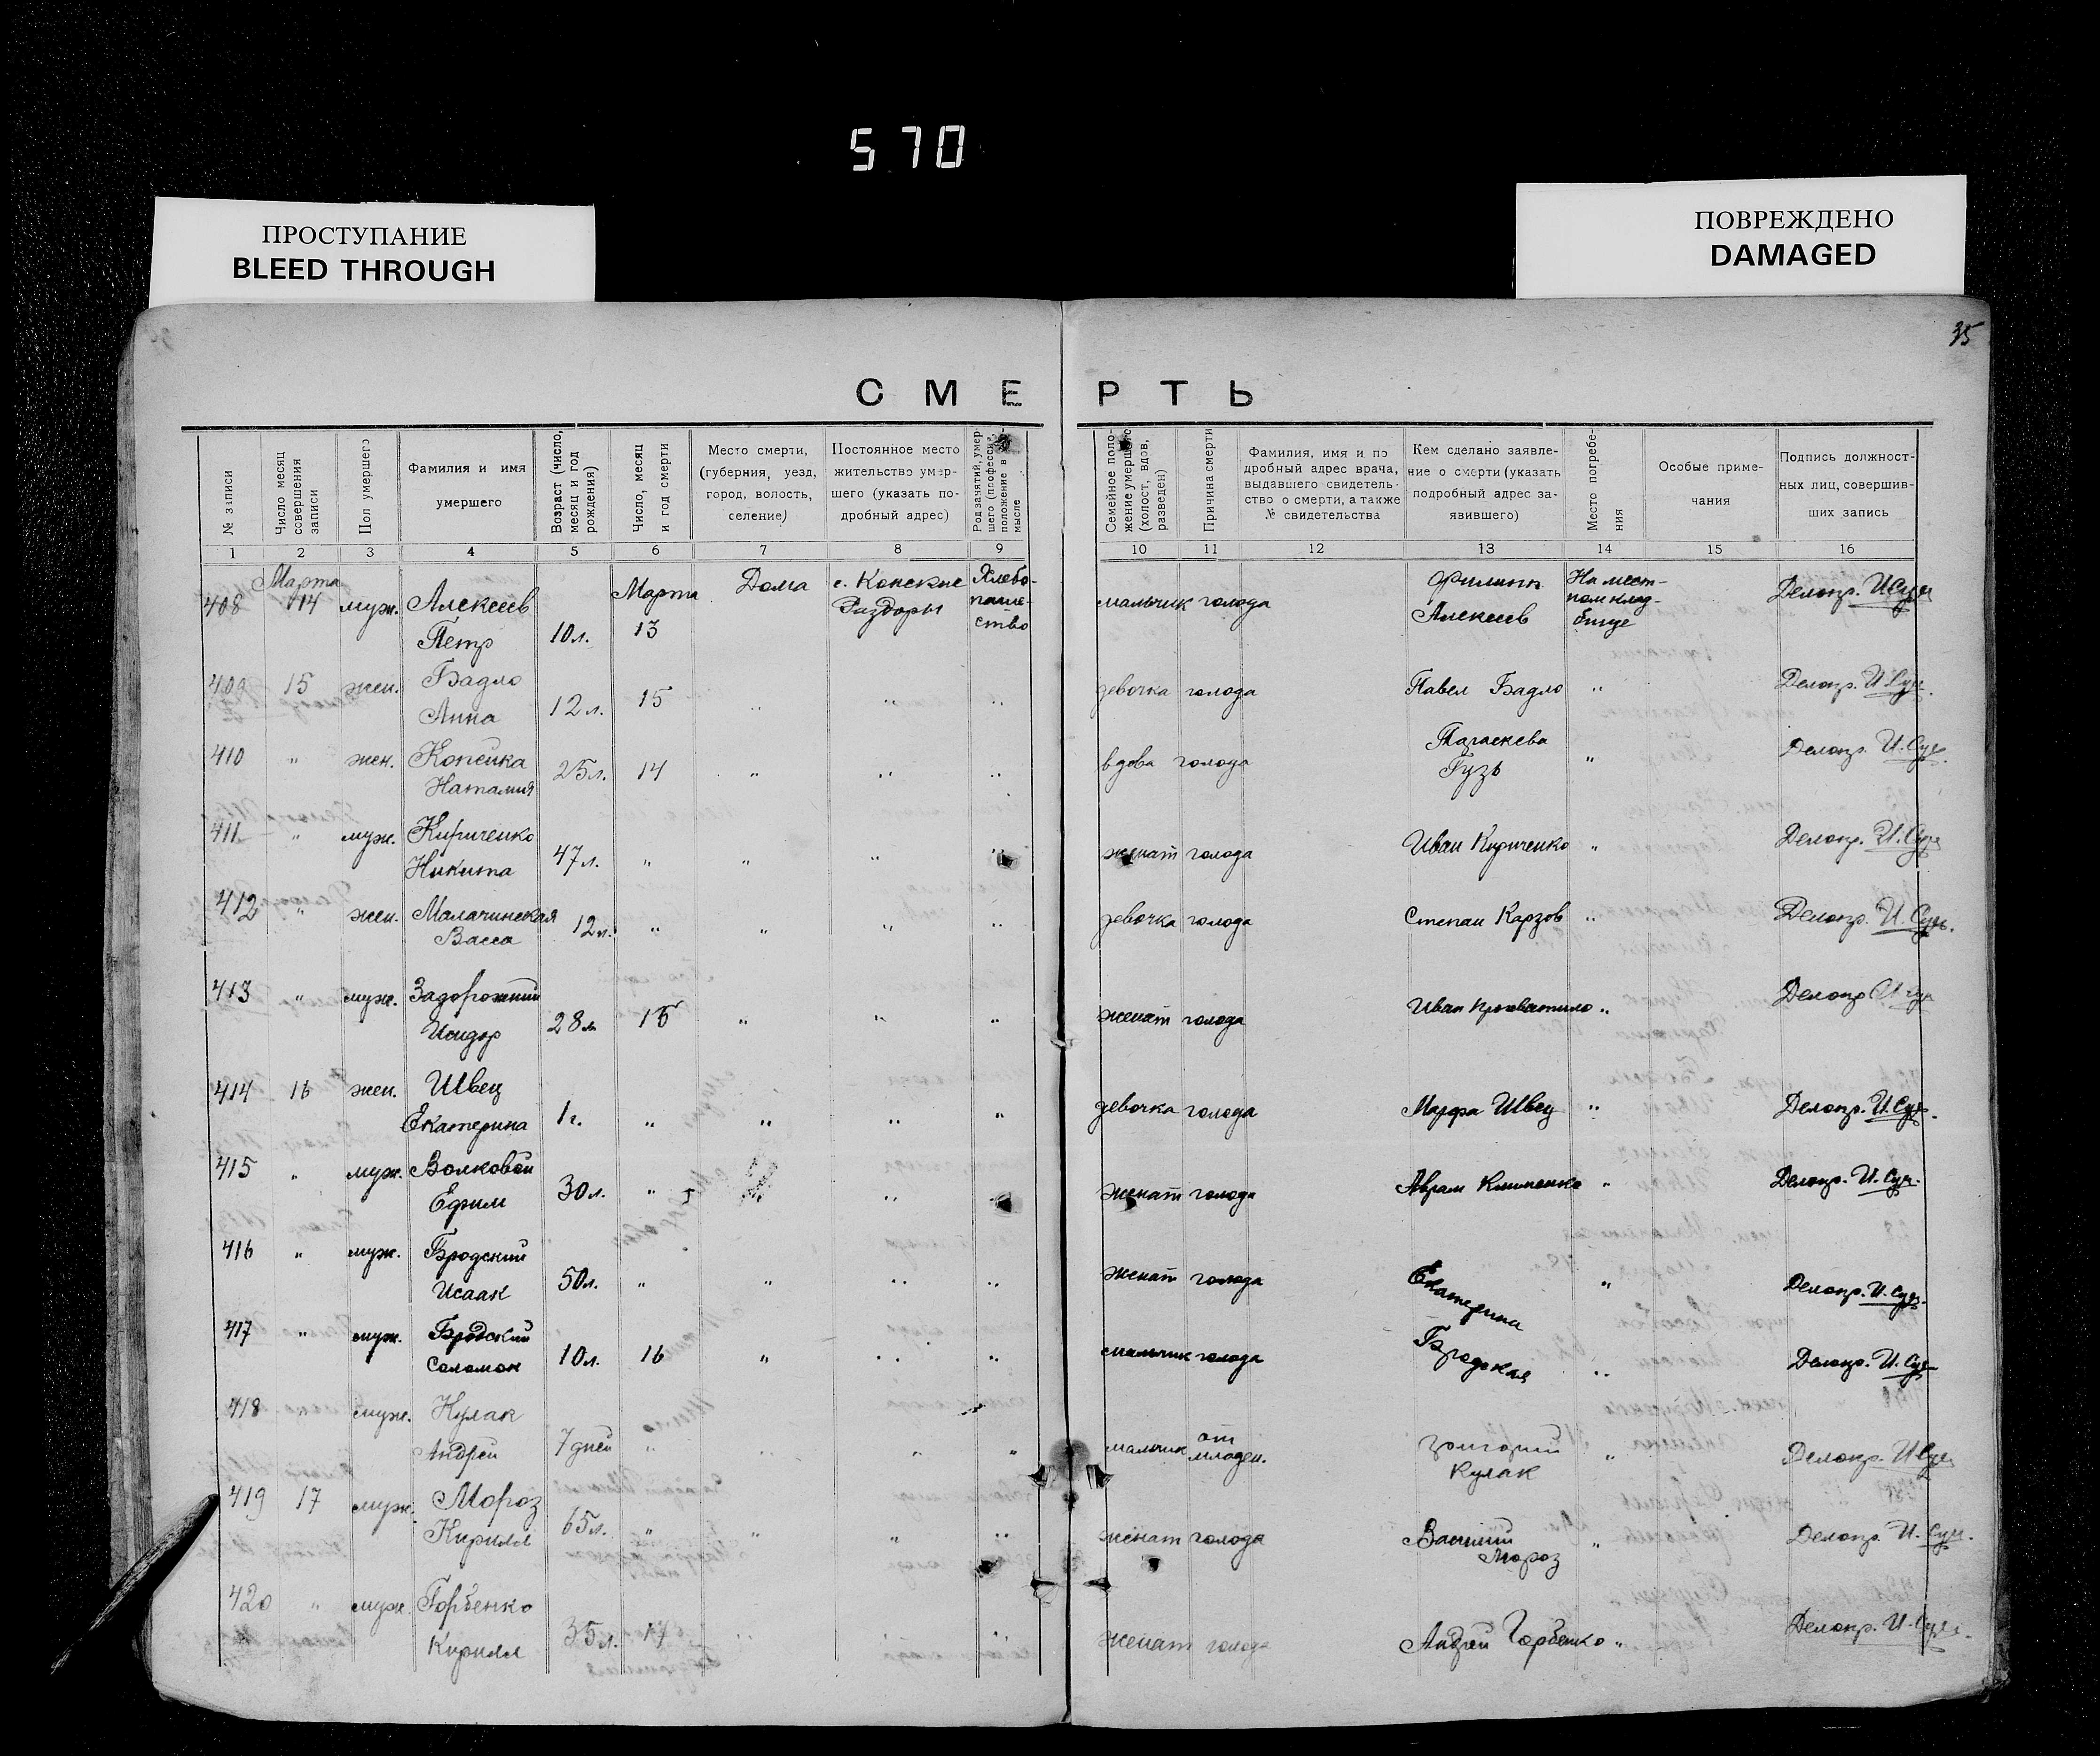 570
ПРОСТУПАНИЕ
BLEED THROUGH
ПОВРЕЖДЕНО
DAMAGED
35
СМЕРТЬ
№ записи
Число месяц совершения записи
Пол умершего
Фамилия и имя
умершего
Возраст (число, месяц и год рождения)
Число, месяц и год смерти
Место смерти,
(губерния, уезд,
город, волость,
селение)
Постоянное место
жительство умер-
шего (указать по-
дробный адрес)
Род занятий, умер-
шего (профессия,
положение в
мысле
Семейное поло-
жение умершего
(холост, вдов,
разведен)
Причина смерти
Фамилия, имя и по
дробный адрес врача,
выдавшего свидетель-
ство о смерти, а также
№ свидетельства
Кем сделано заявле-
ние о смерти (указать
подробный адрес за-
явившего)
Место погребе-
ния
Особые приме-
чания
Подпись должност-
ных лиц, совершив-
ших запись
1 2 3 4 5 6 7 8 9 10 11 12 13 14 15 16
Марта Марта Дома с. Конские Хлебо- Филипп На мест-
408 14 муж. Алексеев Раздоры паше- мальчик голода Алексеев ном клад- Делопр.
Петр 10 л. 13 ство бище
409 15 жен. Бадло девочка голода Павел Бадло " Делопр.
Анна 12 л. 15 " " "
410 " жен. Копейка вдова голода Параскева " Делопр.
Наталия 25 л. 14 " " " Гузь
411 " муж. Кириченко женат голода Иван Кириченко " Делопр.
Никита 47 л. " " " "
412 " жен. Малачинская девочка голода Степан Карзов " Делопр.
Васса 12 л. " " " "
413 " муж. Задорожний женат голода Иван " Делопр.
Исидор 28 л. 15 " " "
414 16 жен. Швец девочка голода Марфа Швец " Делопр.
Екатерина 1 г. " " " "
415 " муж. Волковой женат голода Аврам Клименко " Делопр.
Ефим 30 л. " " " "
416 " муж. Бродский женат голода Екатерина " Делопр.
Исаак 50 л. " " " "
417 " муж. Бродский мальчик голода Бродская " Делопр.
Соломон 10 л. 16 " " "
418 муж. Кулак мальчик от Григорий " Делопр.
Андрей 7 дней " " " " младен. Кулак
419 17 муж. Мороз женат голода Василий " Делопр.
Кирилл 65 л. " " " " Мороз
420 " муж. Горбенко женат голода Андрей Горбенко " Делопр.
Кирилл 35 л. 17 " " "